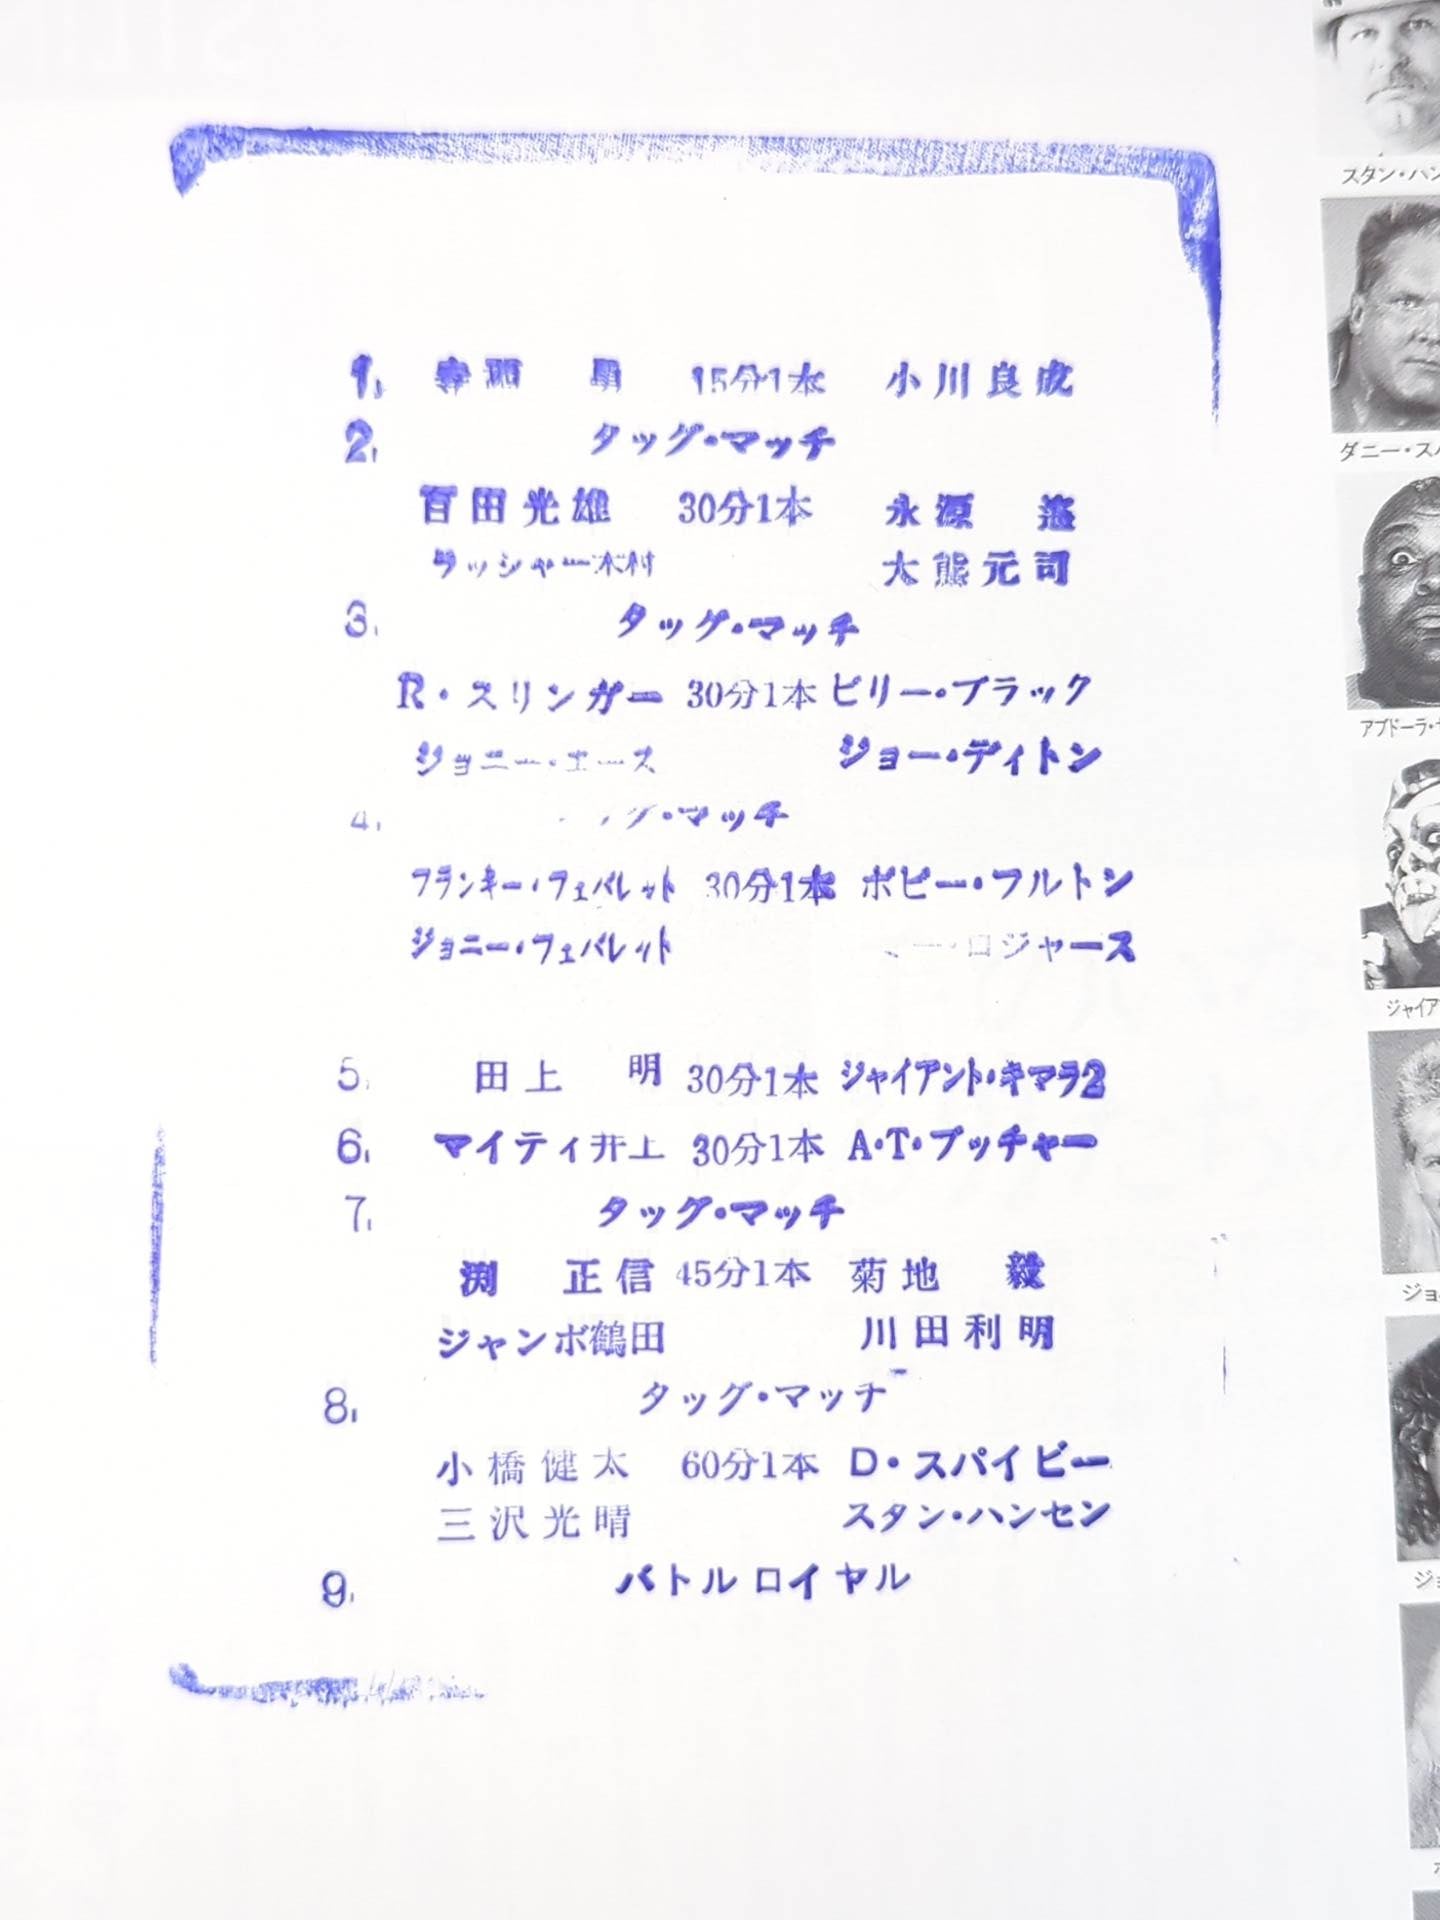 1. 15分1本 小川良成
2. タッグ・マッチ
百田光雄 30分1本 永源 遙
ラッシャー木村 大熊元司
3. タッグ・マッチ
R・スリンガー 30分1本 ビリー・ブラック
ジョニー・エース ジョー・ディトン
4. グ・マッチ
フランキー・フェバレット 30分1本 ボビー・フルトン
ジョニー・フェバレット ー・ロジャース
5. 田上 明 30分1本 ジャイアント・キマラ2
6. マイティ井上 30分1本 A・T・ブッチャー
7. タッグ・マッチ
渕 正信 45分1本 菊地 毅
ジャンボ鶴田 川田利明
8. タッグ・マッチ
小橋健太 60分1本 D・スパイビー
三沢光晴 スタン・ハンセン
9. バトルロイヤル
スタン・ハン
ダニー・スパ
アブドーラ・
ジャイア
ジョ
ジョ